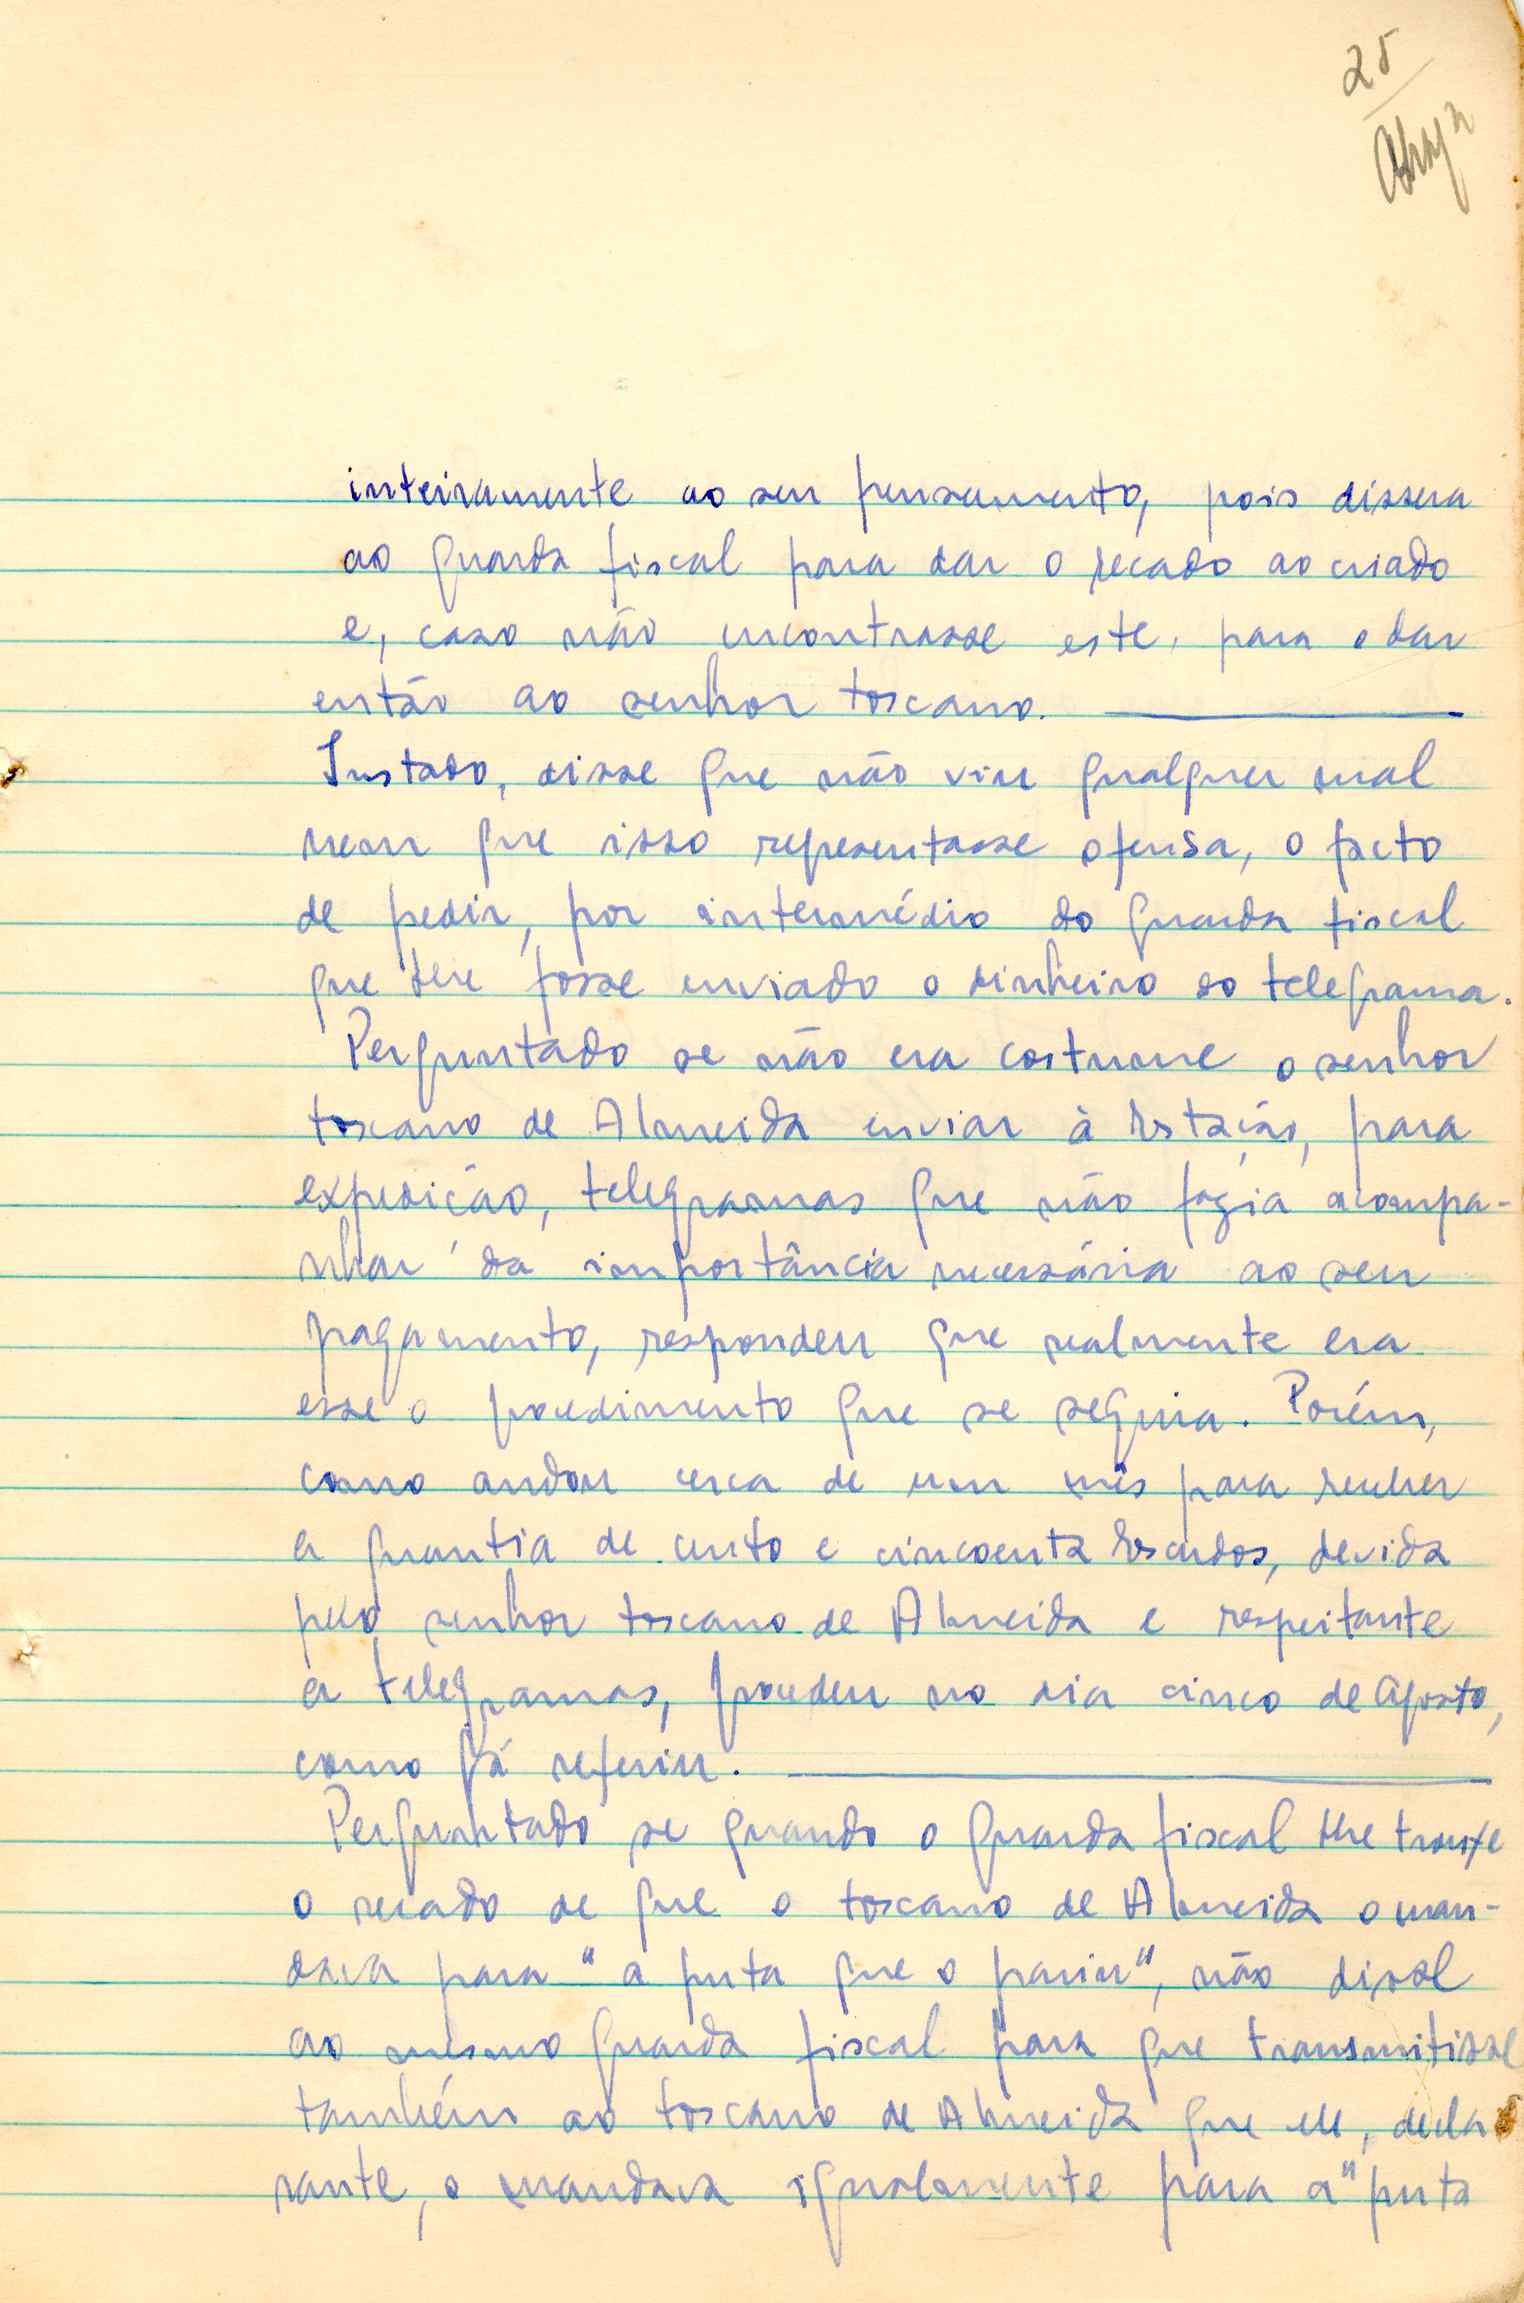 25
inteiramente ao seu pensamento, pois dissera
ao guarda fiscal para dar o recado ao criado
e, caso não encontrasse este, para o dar
então ao senhor Toscano.
Instado, disse que não viu qualquer mal
nem que isso representasse ofensa, o facto
de pedir, por intermédio do guarda fiscal
que lhe fosse enviado o dinheiro do telegrama.
Perguntado se não era costume o senhor
Toscano de Almeida enviar à Estação, para
expedição, telegramas que não fazia acompa-
nhar da importância necessária ao seu
pagamento, respondeu que realmente era
esse o procedimento que se seguia. Porém,
como andou cerca de um mês para receber
a quantia de cento e cincoenta Escudos, devida
pelo senhor Toscano de Almeida e respeitante
a telegramas, procedeu no dia cinco de Agosto,
como já referiu.
Perguntado se quando o guarda fiscal lhe trouxe
o recado de que o Toscano de Almeida o man-
dava para "a puta que o pariu", não disse
ao mesmo guarda fiscal para que transmitisse
também ao Toscano de Almeida que ele, decla
rante, o mandava igualmente para a "puta